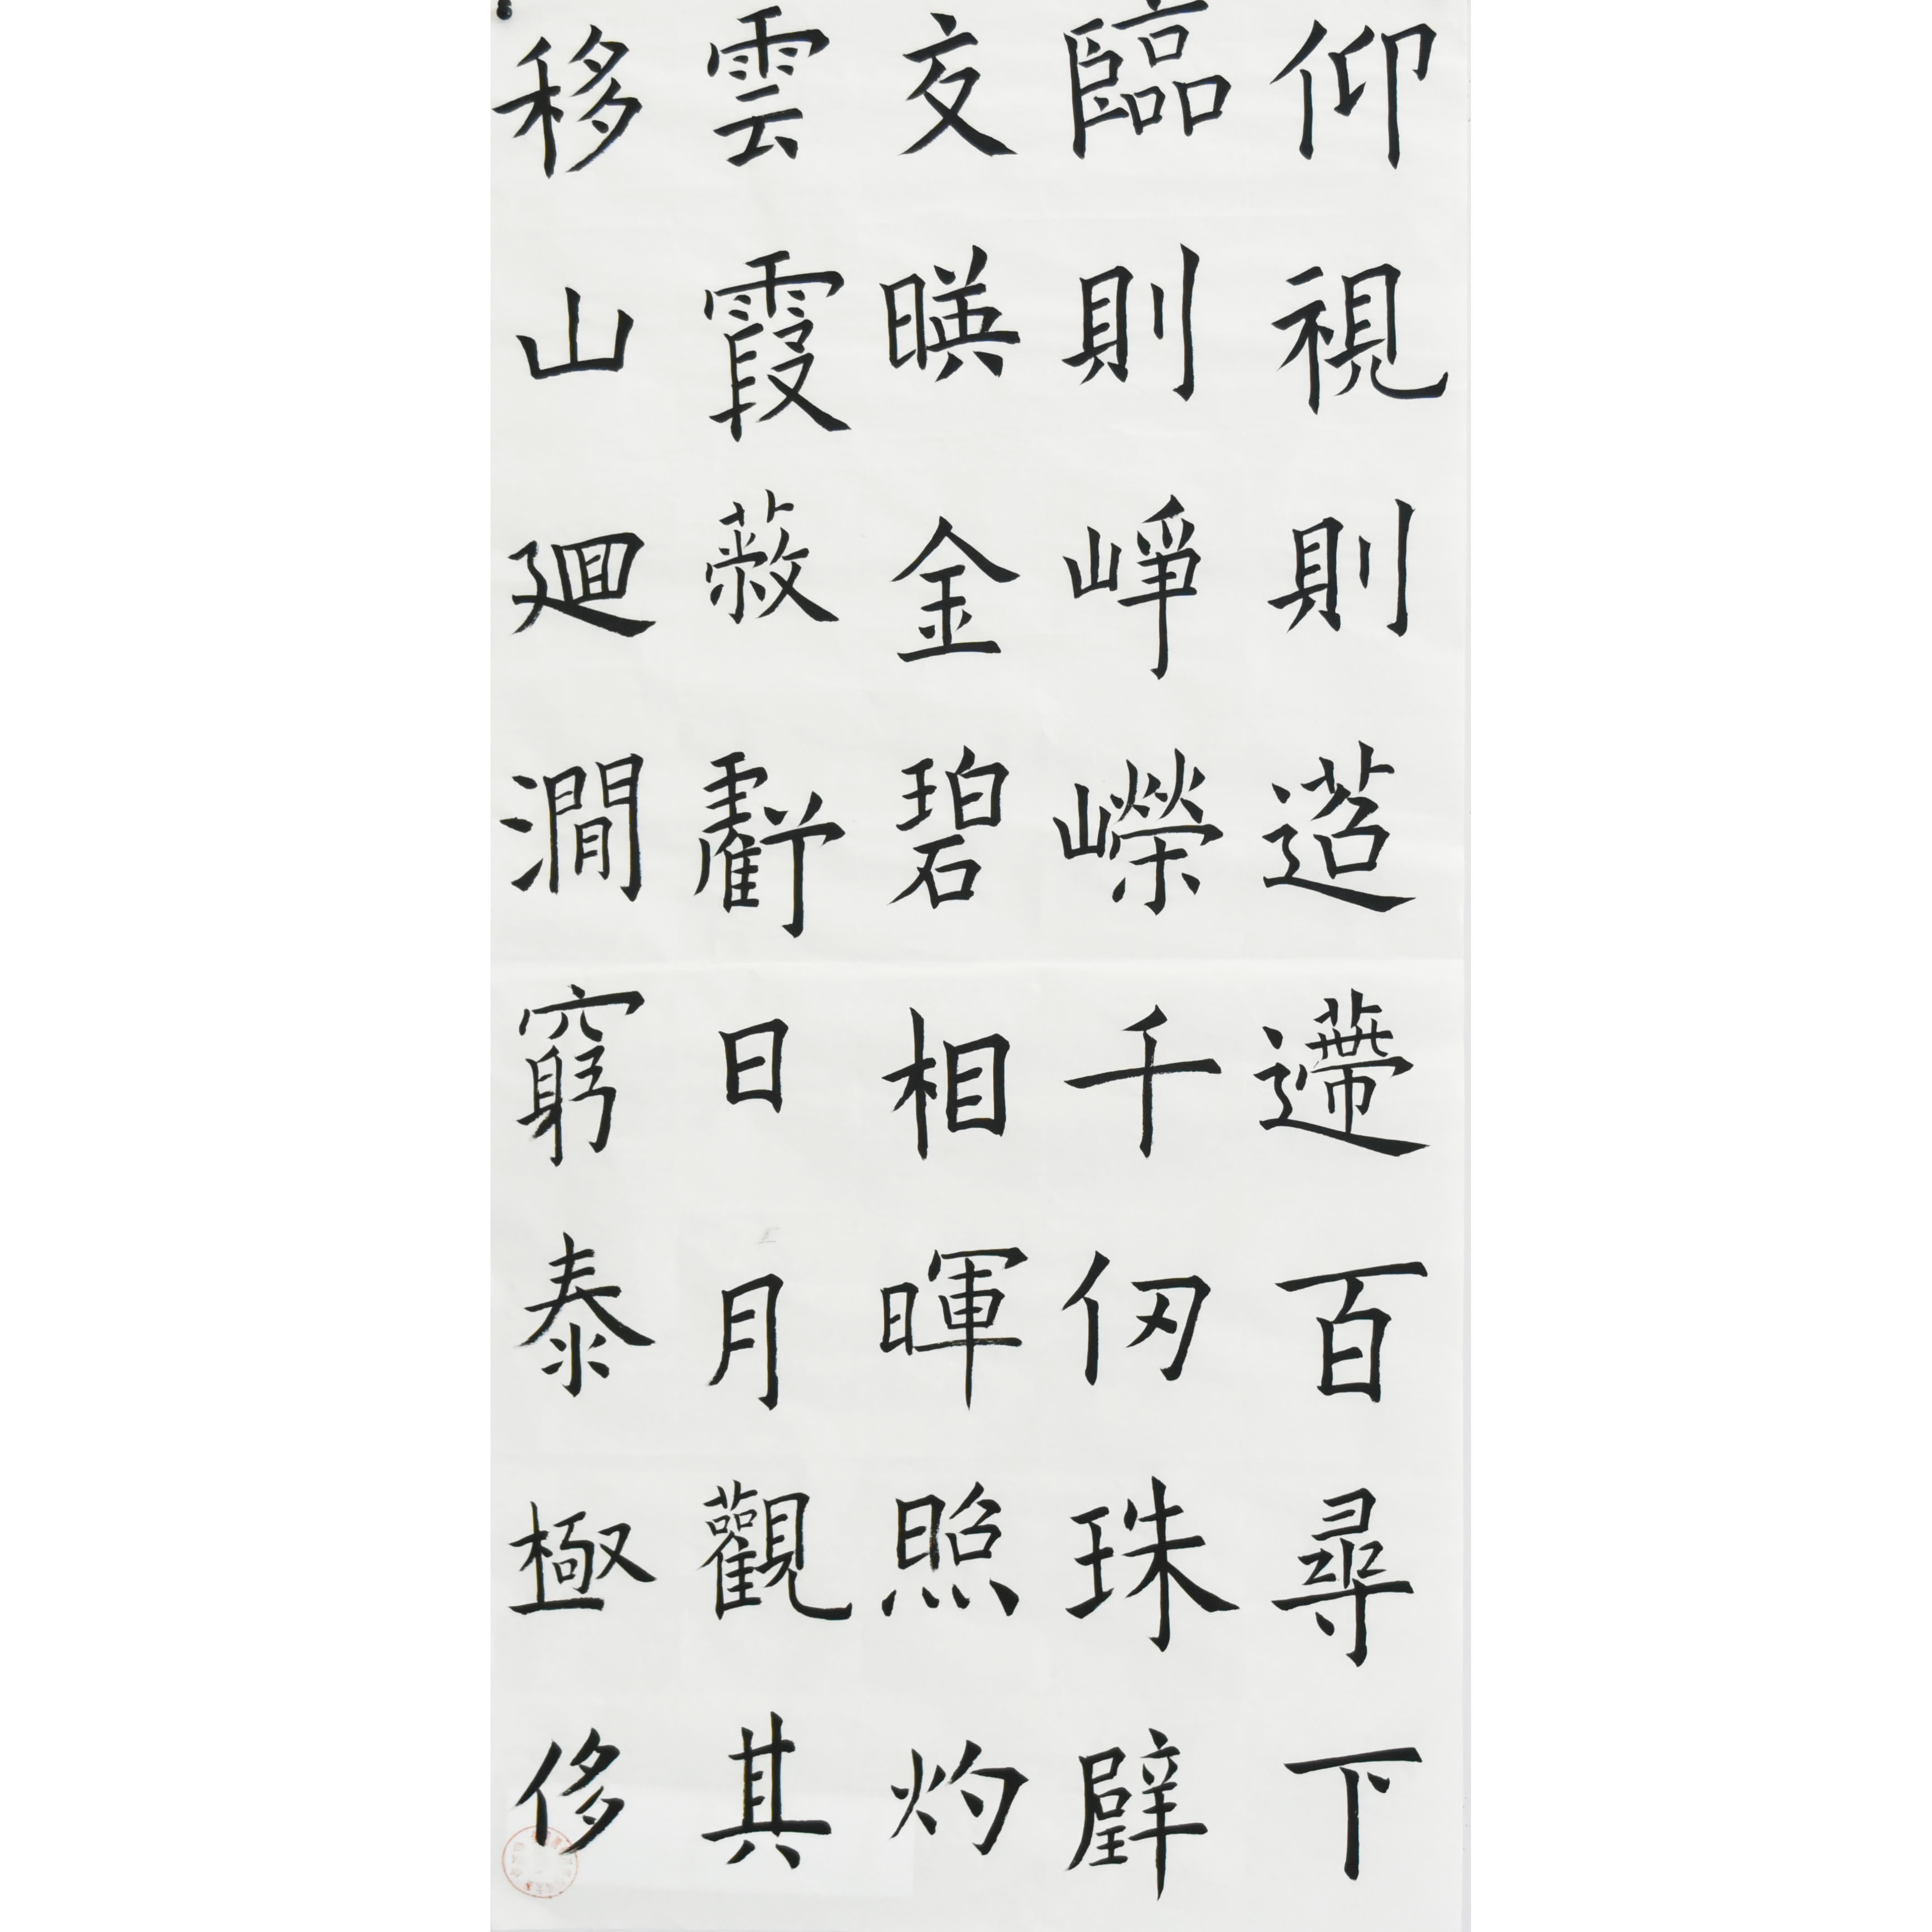 仰視則迢遰百尋下
臨則崢嶸千仞珠壁
交暎金碧相暉照灼
雲霞蔽虧日月觀其
移山廻澗窮泰極侈